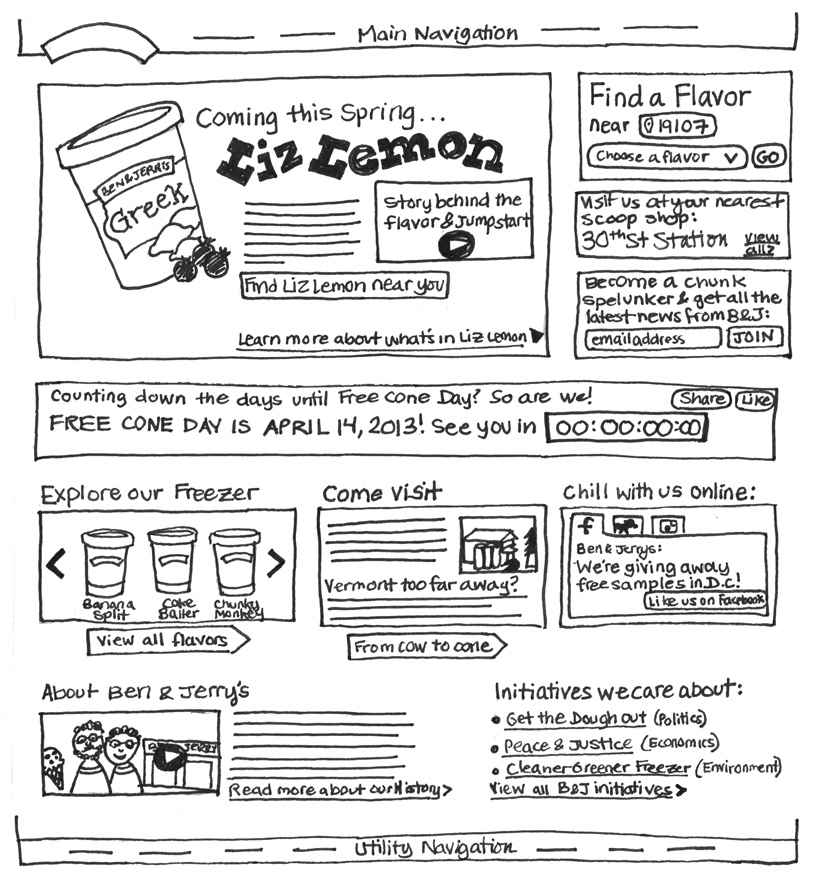 Main Navigation
Coming this Spring...
Liz Lemon
BEN & JERRY'S
Greek
Story behind the
flavor & Jumpstart
Find Liz Lemon near you
Learn more about what's in Liz Lemon
Find a Flavor
near 19107
Choose a flavor GO
Visit us at your nearest
scoop shop:
30th St Station view
all
Become a chunk
spelunker & get all the
latest news from B&J:
email address JOIN
Counting down the days until Free Cone Day? So are we! Share Like
FREE CONE DAY IS APRIL 14, 2013! See you in 00:00:00:00
Explore our Freezer
< >
Banana Split
Cake Batter
Chunky Monkey
View all flavors
Come Visit
Vermont too far away?
From cow to cone
Chill with us online:
f
Ben & Jerrys:
We're giving away
free samples in D.C!
Like us on Facebook
About Ben & Jerry's
JERRY
Read more about our History >
Initiatives we care about:
• Get the Dough out (Politics)
• Peace & Justice (Economics)
• Cleaner Greener Freezer (Environment)
View all B&J initiatives >
Utility Navigation